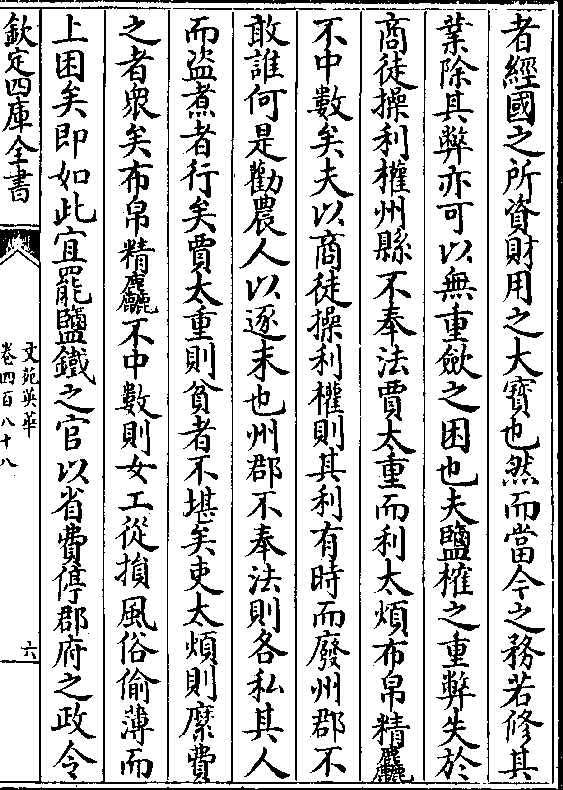 者經國之所資財用之大寶也然而當今之務若修其
業除其弊亦可以無重斂之困也夫鹽榷之重弊失於
商徒操利權州縣不奉法賈太重而利太煩布帛精麤
不中數矣夫以商徒操利權則其利有時而廢州郡不
敢誰何是勸農人以逐末也州郡不奉法則各私其人
而盜煮者行矣賈太重則貧者不堪矣吏太煩則縻費
之者衆矣布帛精麤不中數則女工從損風俗偷薄而
上困矣即如此宜罷鹽鐵之官以省費停郡府之政令
欽定四庫全書
文苑英華
卷四百八十八
六